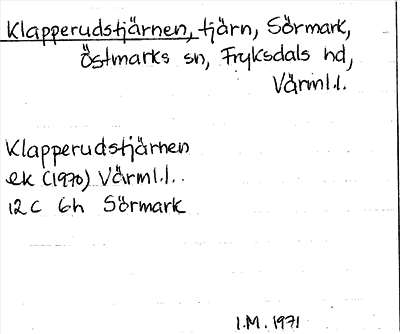 Klapperudstjärnen, tjärn, Sörmark,
Östmarks sn, Fryksdals hd,
Värml.l.
Klapperudstjärnen
ek (1970) Värml.l.
12 C 6h Sörmark
I.M. 1971